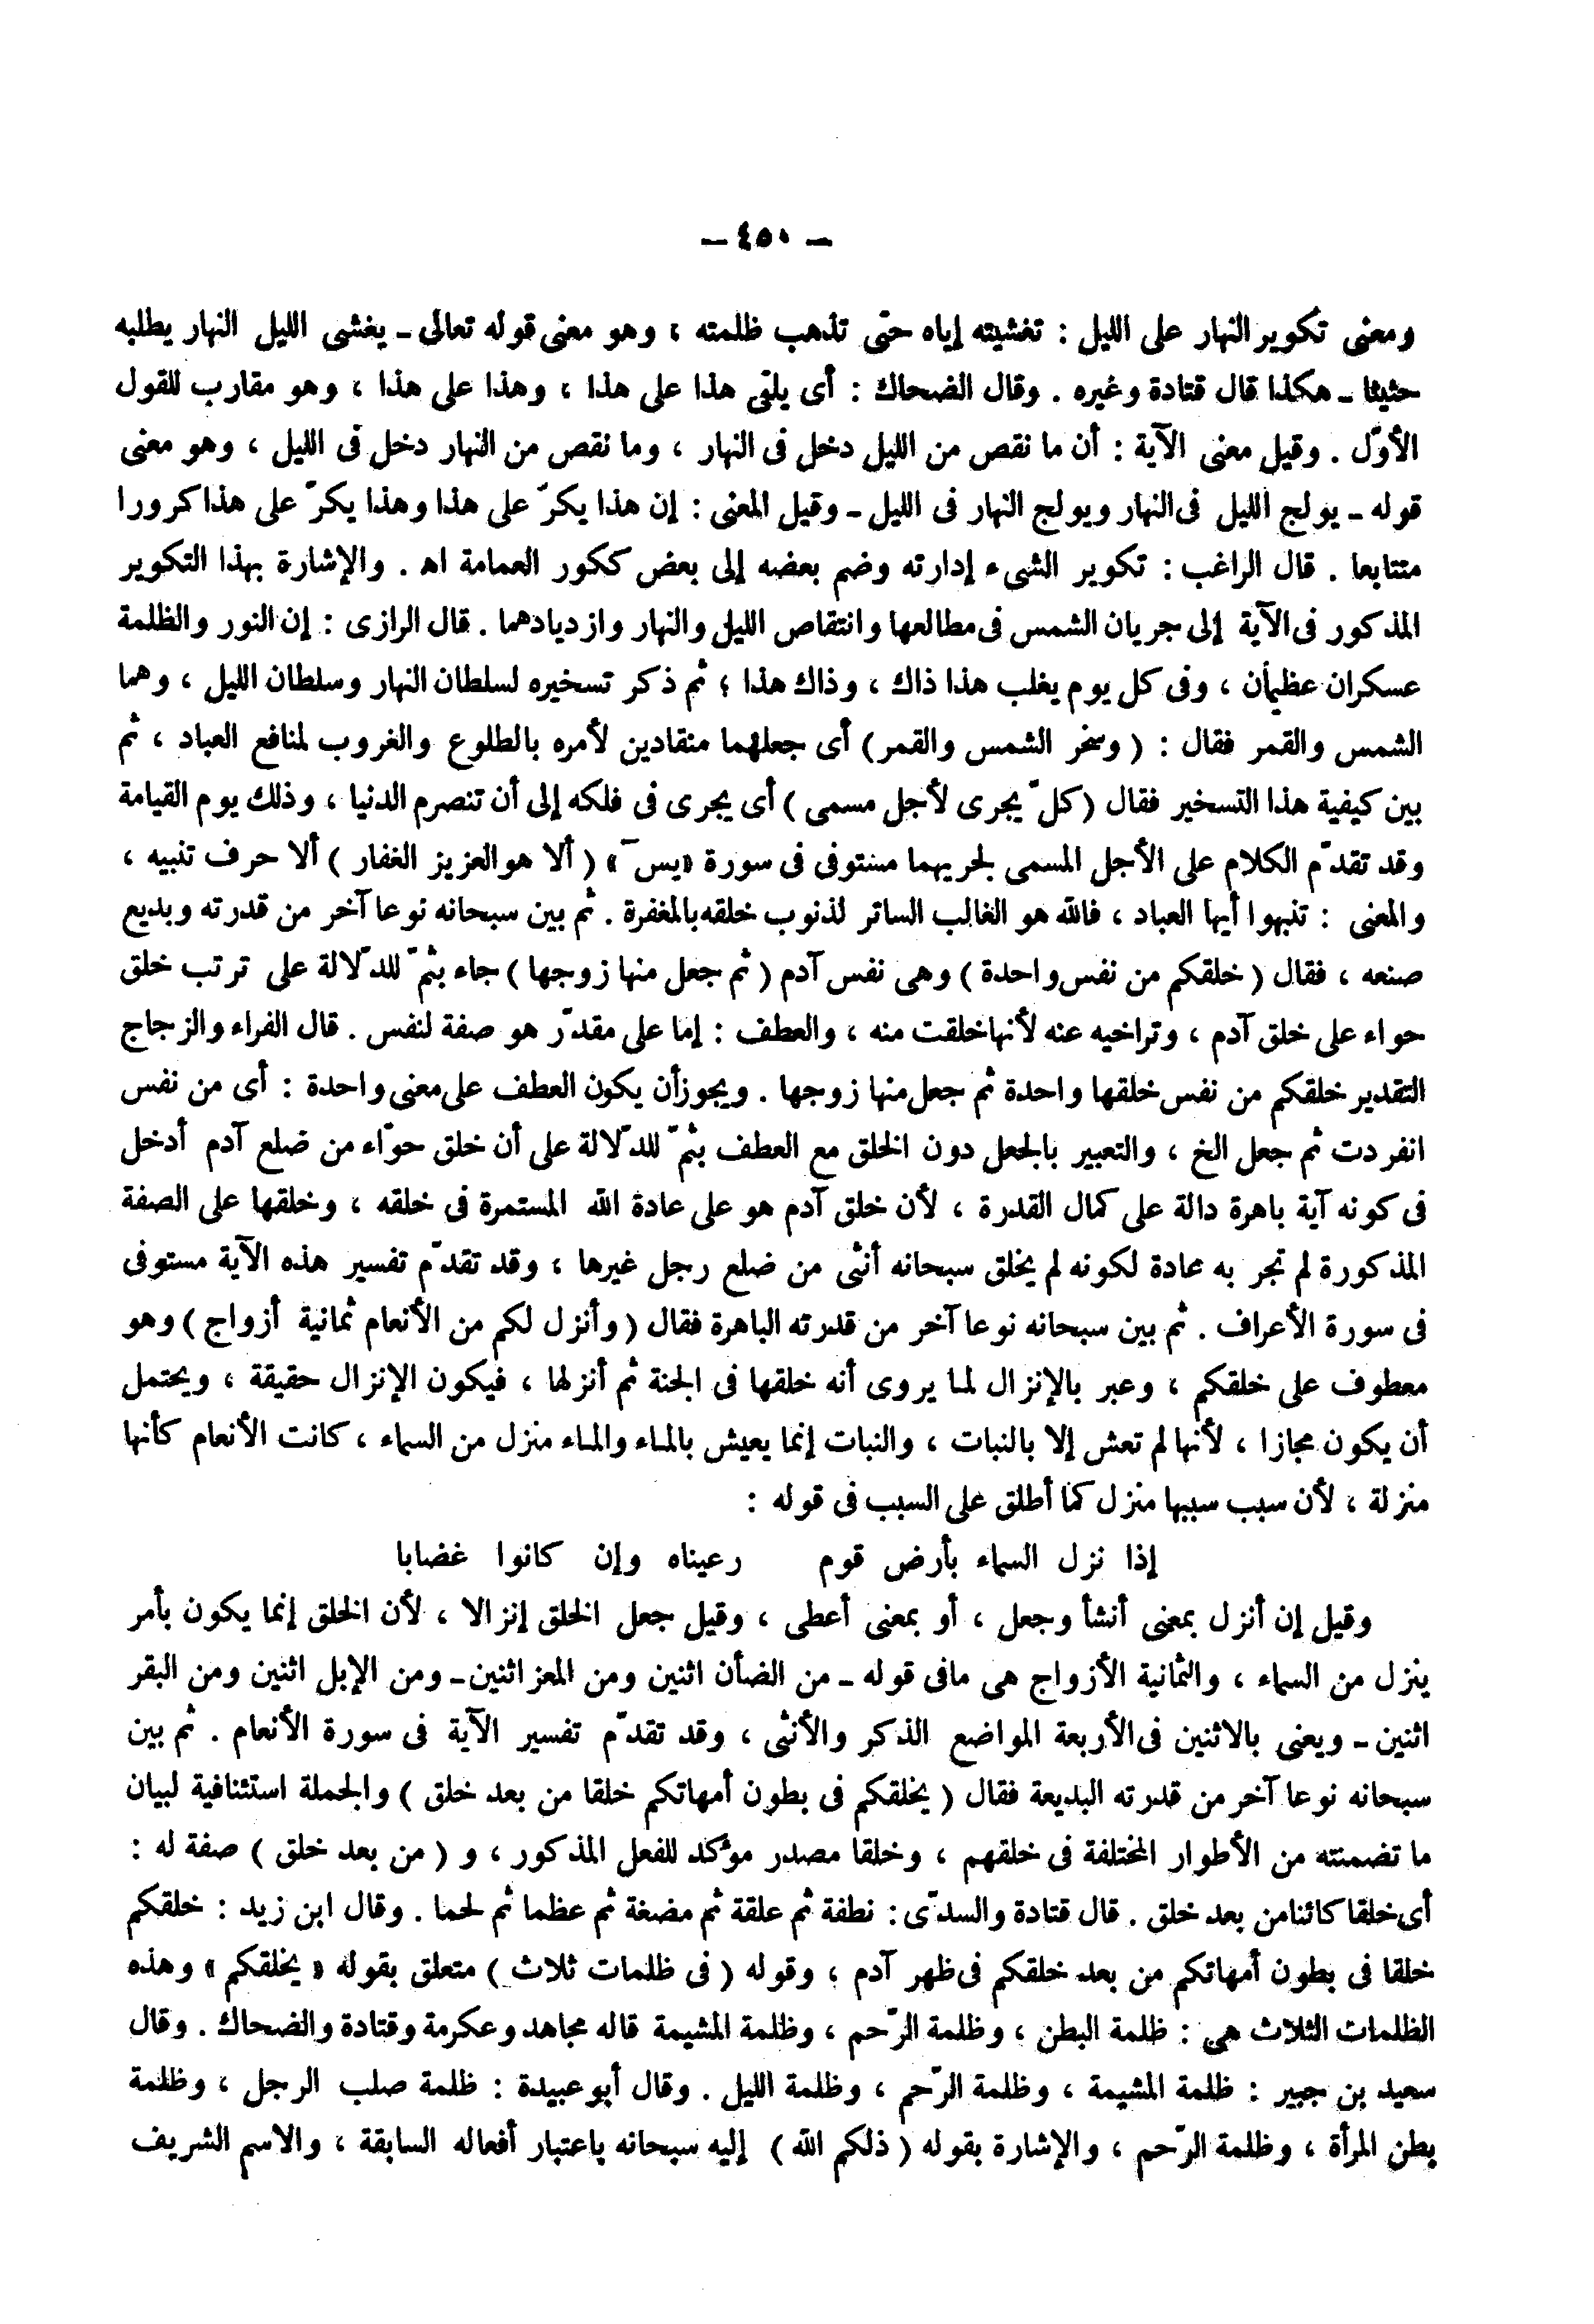 — ٤٥٠ —
ومعنى تكوير النهار على الليل : تغشيته إياه حتى تذهب ظلمته ، وهو معنى قوله تعالى ـ يغشى الليل النهار يطلبه
حثيثا ـ هكذا قال قتادة وغيره . وقال الضحاك : أى يلقى هذا على هذا ، وهذا على هذا ، وهو مقارب للقول
الأوّل . وقيل معنى الآية : أن ما نقص من الليل دخل فى النهار ، وما نقص من النهار دخل فى الليل ، وهو معنى
قوله ـ يولج الليل فى النهار ويولج النهار فى الليل ـ وقيل المعنى : إن هذا يكرّ على هذا وهذا يكرّ على هذا كرورا
متتابعا . قال الراغب : تكوير الشىء إدارته وضم بعضه إلى بعض ككور العمامة اه . والإشارة بهذا التكوير
المذكور فى الآية إلى جريان الشمس فى مطالعها وانتقاص الليل والنهار وازديادهما . قال الرازى : إن النور والظلمة
عسكران عظيمان ، وفى كل يوم يغلب هذا ذاك ، وذاك هذا ؛ ثم ذكر تسخيره لسلطان النهار وسلطان الليل ، وهما
الشمس والقمر فقال : ( وسخر الشمس والقمر ) أى جعلهما منقادين لأمره بالطلوع والغروب لمنافع العباد ، ثم
بين كيفية هذا التسخير فقال ( كلّ يجرى لأجل مسمى ) أى يجرى فى فلكه إلى أن تنصرم الدنيا ، وذلك يوم القيامة
وقد تقدّم الكلام على الأجل المسمى لجريهما مستوفى فى سورة «يسۤ» ( ألا هو العزيز الغفار ) ألا حرف تنبيه ،
والمعنى : تنبهوا أيها العباد ، فالله هو الغالب الساتر لذنوب خلقه بالمغفرة . ثم بين سبحانه نوعا آخر من قدرته وبديع
صنعه ، فقال ( خلقكم من نفس واحدة ) وهى نفس آدم ( ثم جعل منها زوجها ) جاء بثمّ للدّلالة على ترتب خلق
حواء على خلق آدم ، وتراخيه عنه لأنها خلقت منه ، والعطف : إما على مقدّر هو صفة لنفس . قال الفراء والزجاج
التقدير خلقكم من نفس خلقها واحدة ثم جعل منها زوجها . ويجوز أن يكون العطف على معنى واحدة : أى من نفس
انفردت ثم جعل الخ ، والتعبير بالجعل دون الخلق مع العطف بثمّ للدّلالة على أن خلق حوّاء من ضلع آدم أدخل
فى كونه آية باهرة دالة على كمال القدرة ، لأن خلق آدم هو على عادة الله المستمرة فى خلقه ، وخلقها على الصفة
المذكورة لم تجر به عادة لكونه لم يخلق سبحانه أنثى من ضلع رجل غيرها ، وقد تقدّم تفسير هذه الآية مستوفى
فى سورة الأعراف . ثم بين سبحانه نوعا آخر من قدرته الباهرة فقال ( وأنزل لكم من الأنعام ثمانية أزواج ) وهو
معطوف على خلقكم ، وعبر بالإنزال لما يروى أنه خلقها فى الجنة ثم أنزلها ، فيكون الإنزال حقيقة ، ويحتمل
أن يكون مجازا ، لأنها لم تعش إلا بالنبات ، والنبات إنما يعيش بالماء والماء منزل من السماء ، كانت الأنعام كأنها
منزلة ، لأن سبب سببها منزل كما أطلق على السبب فى قوله :
إذا نزل السماء بأرض قوم رعيناه وإن كانوا غضابا
وقيل إن أنزل بمعنى أنشأ وجعل ، أو بمعنى أعطى ، وقيل جعل الخلق إنزالا ، لأن الخلق إنما يكون بأمر
ينزل من السماء ، والثمانية الأزواج هى مافى قوله ـ من الضأن اثنين ومن المعز اثنين ـ ومن الإبل اثنين ومن البقر
اثنين ـ ويعنى بالاثنين فى الأربعة المواضع الذكر والأنثى ، وقد تقدّم تفسير الآية فى سورة الأنعام . ثم بين
سبحانه نوعا آخر من قدرته البديعة فقال ( يخلقكم فى بطون أمهاتكم خلقا من بعد خلق ) والجملة استئنافية لبيان
ما تضمنته من الأطوار المختلفة فى خلقهم ، وخلقا مصدر مؤكد للفعل المذكور ، و ( من بعد خلق ) صفة له :
أى خلقا كائنا من بعد خلق . قال قتادة والسدّى : نطفة ثم علقة ثم مضغة ثم عظما ثم لحما . وقال ابن زيد : خلقكم
خلقا فى بطون أمهاتكم من بعد خلقكم فى ظهر آدم ، وقوله ( فى ظلمات ثلاث ) متعلق بقوله « يخلقكم » وهذه
الظلمات الثلاث هى : ظلمة البطن ، وظلمة الرّحم ، وظلمة المشيمة قاله مجاهد وعكرمة وقتادة والضحاك . وقال
سعيد بن جبير : ظلمة المشيمة ، وظلمة الرّحم ، وظلمة الليل . وقال أبو عبيدة : ظلمة صلب الرجل ، وظلمة
بطن المرأة ، وظلمة الرّحم ، والإشارة بقوله ( ذلكم الله ) إليه سبحانه باعتبار أفعاله السابقة ، والاسم الشريف